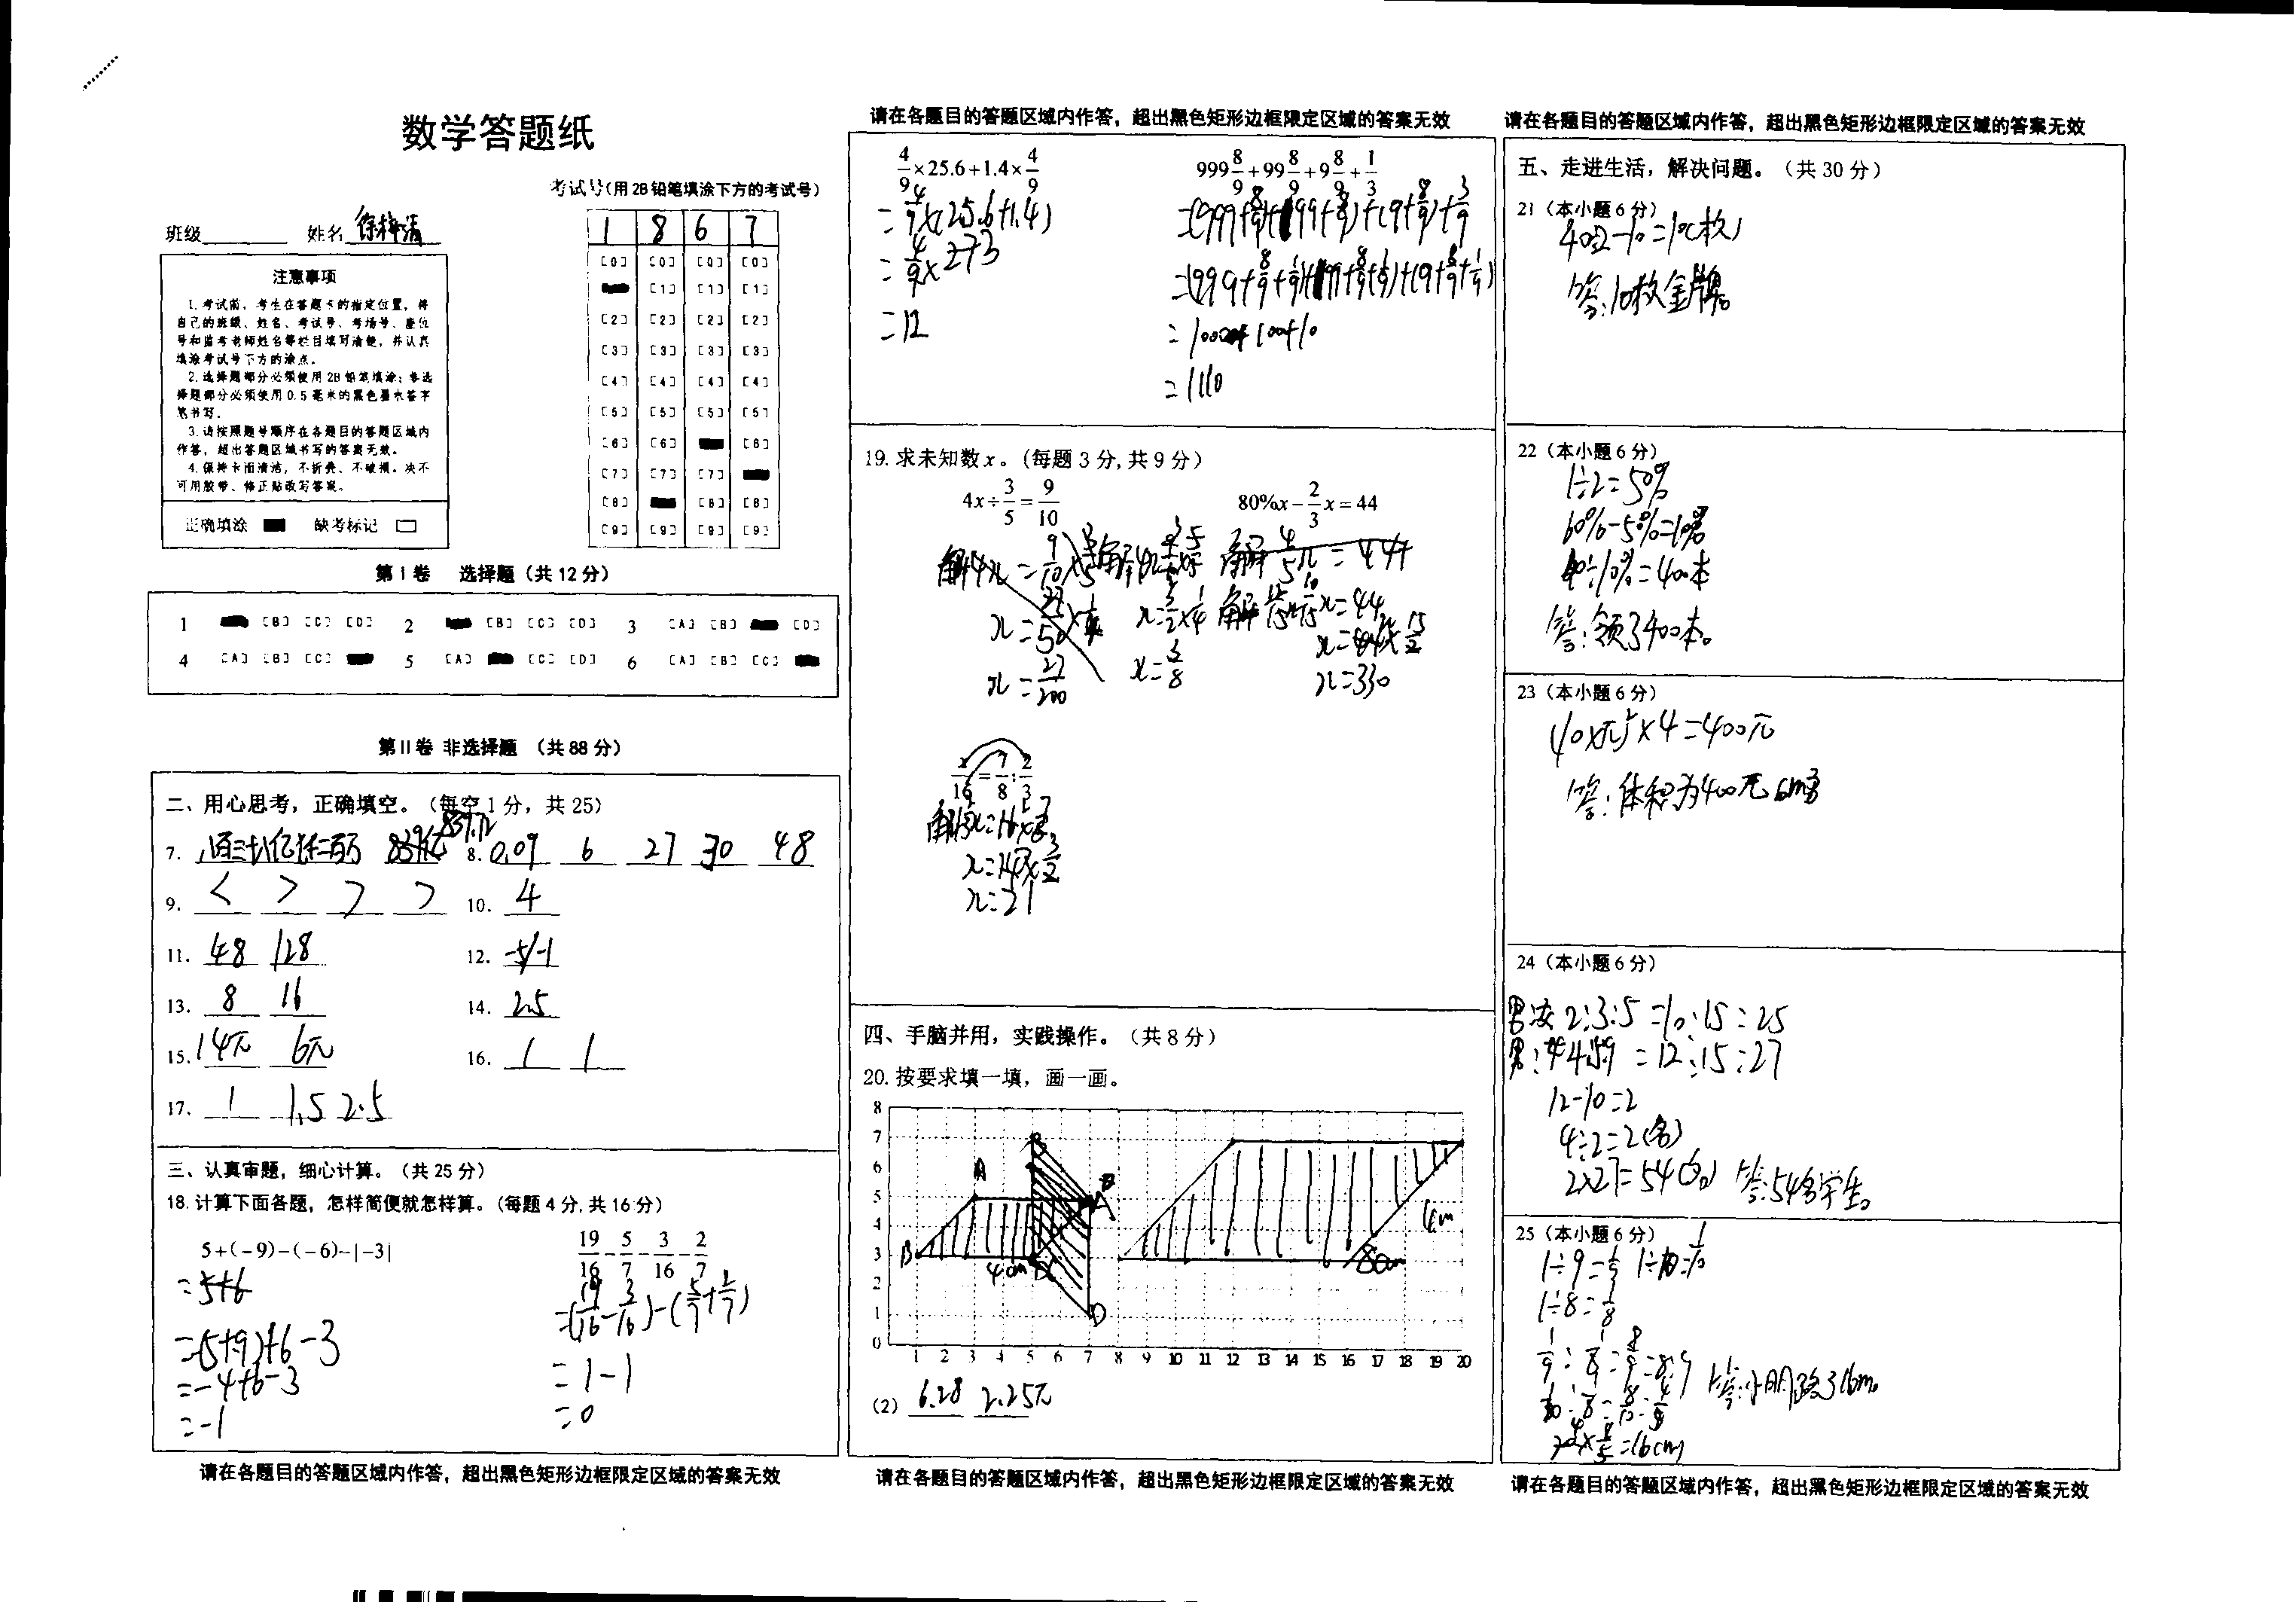 数学答题纸
考试号(用2B铅笔填涂下方的考试号)
班级 姓名
1 8 6 7
[0] [0] [0] [0]
[1] [1] [1]
[2] [2] [2] [2]
[3] [3] [3] [3]
[4] [4] [4] [4]
[5] [5] [5] [5]
[6] [6] [6]
[7] [7] [7]
[8] [8] [8]
[9] [9] [9] [9]
注意事项
1.考试前，考生在答题卡的指定位置，将
自己的班级、姓名、考试号、考场号、座位
号和监考老师姓名等栏目填写清楚，并认真
填涂考试号下方的涂点。
2.选择题部分必须使用2B铅笔填涂；非选
择题部分必须使用0.5毫米的黑色墨水签字
笔书写。
3.请按照题号顺序在各题目的答题区域内
作答，超出答题区域书写的答案无效。
4.保持卡面清洁，不折叠、不破损。决不
可用胶带、修正贴改写答案。
正确填涂 缺考标记
第Ⅰ卷 选择题（共12分）
1 [B] [C] [D] 2 [B] [C] [D] 3 [A] [B] [D]
4 [A] [B] [C] 5 [A] [C] [D] 6 [A] [B] [C]
第Ⅱ卷 非选择题 （共88分）
二、用心思考，正确填空。（每空1分，共25）
7. 839亿 839.12 8. 0.09 6 27 30 48
9. < > > > 10. 4
11. 48 128 12. -1
13. 8 16 14. 25
15. 14π 6π 16. 1 1
17. 1 1.5 2.5
三、认真审题，细心计算。（共25分）
18.计算下面各题，怎样简便就怎样算。(每题4分,共16分)
5+(-9)-(-6)-|-3|
=5+6
=(5+9)+6-3
=-4+6-3
=-1
19/16-5/7-3/16-2/7
=(19/16-3/16)-(5/7+2/7)
=1-1
=0
请在各题目的答题区域内作答，超出黑色矩形边框限定区域的答案无效
请在各题目的答题区域内作答，超出黑色矩形边框限定区域的答案无效
4/9×25.6+1.4×4/9
=4/9×(25.6+1.4)
=4/9×273
=12
999 8/9+99 8/9+9 8/9+1/3
=(999+8/9)+(99+8/9)+(9+8/9)+3/9
=(999+8/9+1/9)+(99+8/9+1/9)+(9+8/9+1/9)
=1000+100+10
=1110
19.求未知数x。(每题3分,共9分)
4x÷3/5=9/10
解4x=9/10×3/5
x=27/50×1/4
x=27/200
x=3/2×1/4
x=3/8
80%x-2/3x=44
解 4/5x=44
解 12/15x-10/15x=44
x=44×15/2
x=330
x/16=7/8:2/3
x=14×3/2
x=21
四、手脑并用，实践操作。（共8分）
20.按要求填一填，画一画。
8
7
6
5
4
3
2
1
0
1 2 3 4 5 6 7 8 9 10 11 12 13 14 15 16 17 18 19 20
A B
B A
4cm
D
8cm
(2) 6.28 2.25π
请在各题目的答题区域内作答，超出黑色矩形边框限定区域的答案无效
请在各题目的答题区域内作答，超出黑色矩形边框限定区域的答案无效
五、走进生活，解决问题。（共30分）
21（本小题6分）
40÷2-10=10(枚)
答:10枚金牌。
22（本小题6分）
1÷2=50%
60%-50%=10%
40÷10%=400本
答:领了400本。
23（本小题6分）
答:体积为400π cm³
24（本小题6分）
女 2:3:5=10:15:25
男:4:5:9=12:15:27
12-10=2
4÷2=2(名)
2×27=54(名) 答:54名学生。
25（本小题6分）
1÷9=1/9 1÷10=1/10
1÷8=1/8
1/9:1/8=8/9=8:9
1/10:1/8=8/10=4/5
20×4/5=16cm
答:小明跑了16m。
请在各题目的答题区域内作答，超出黑色矩形边框限定区域的答案无效